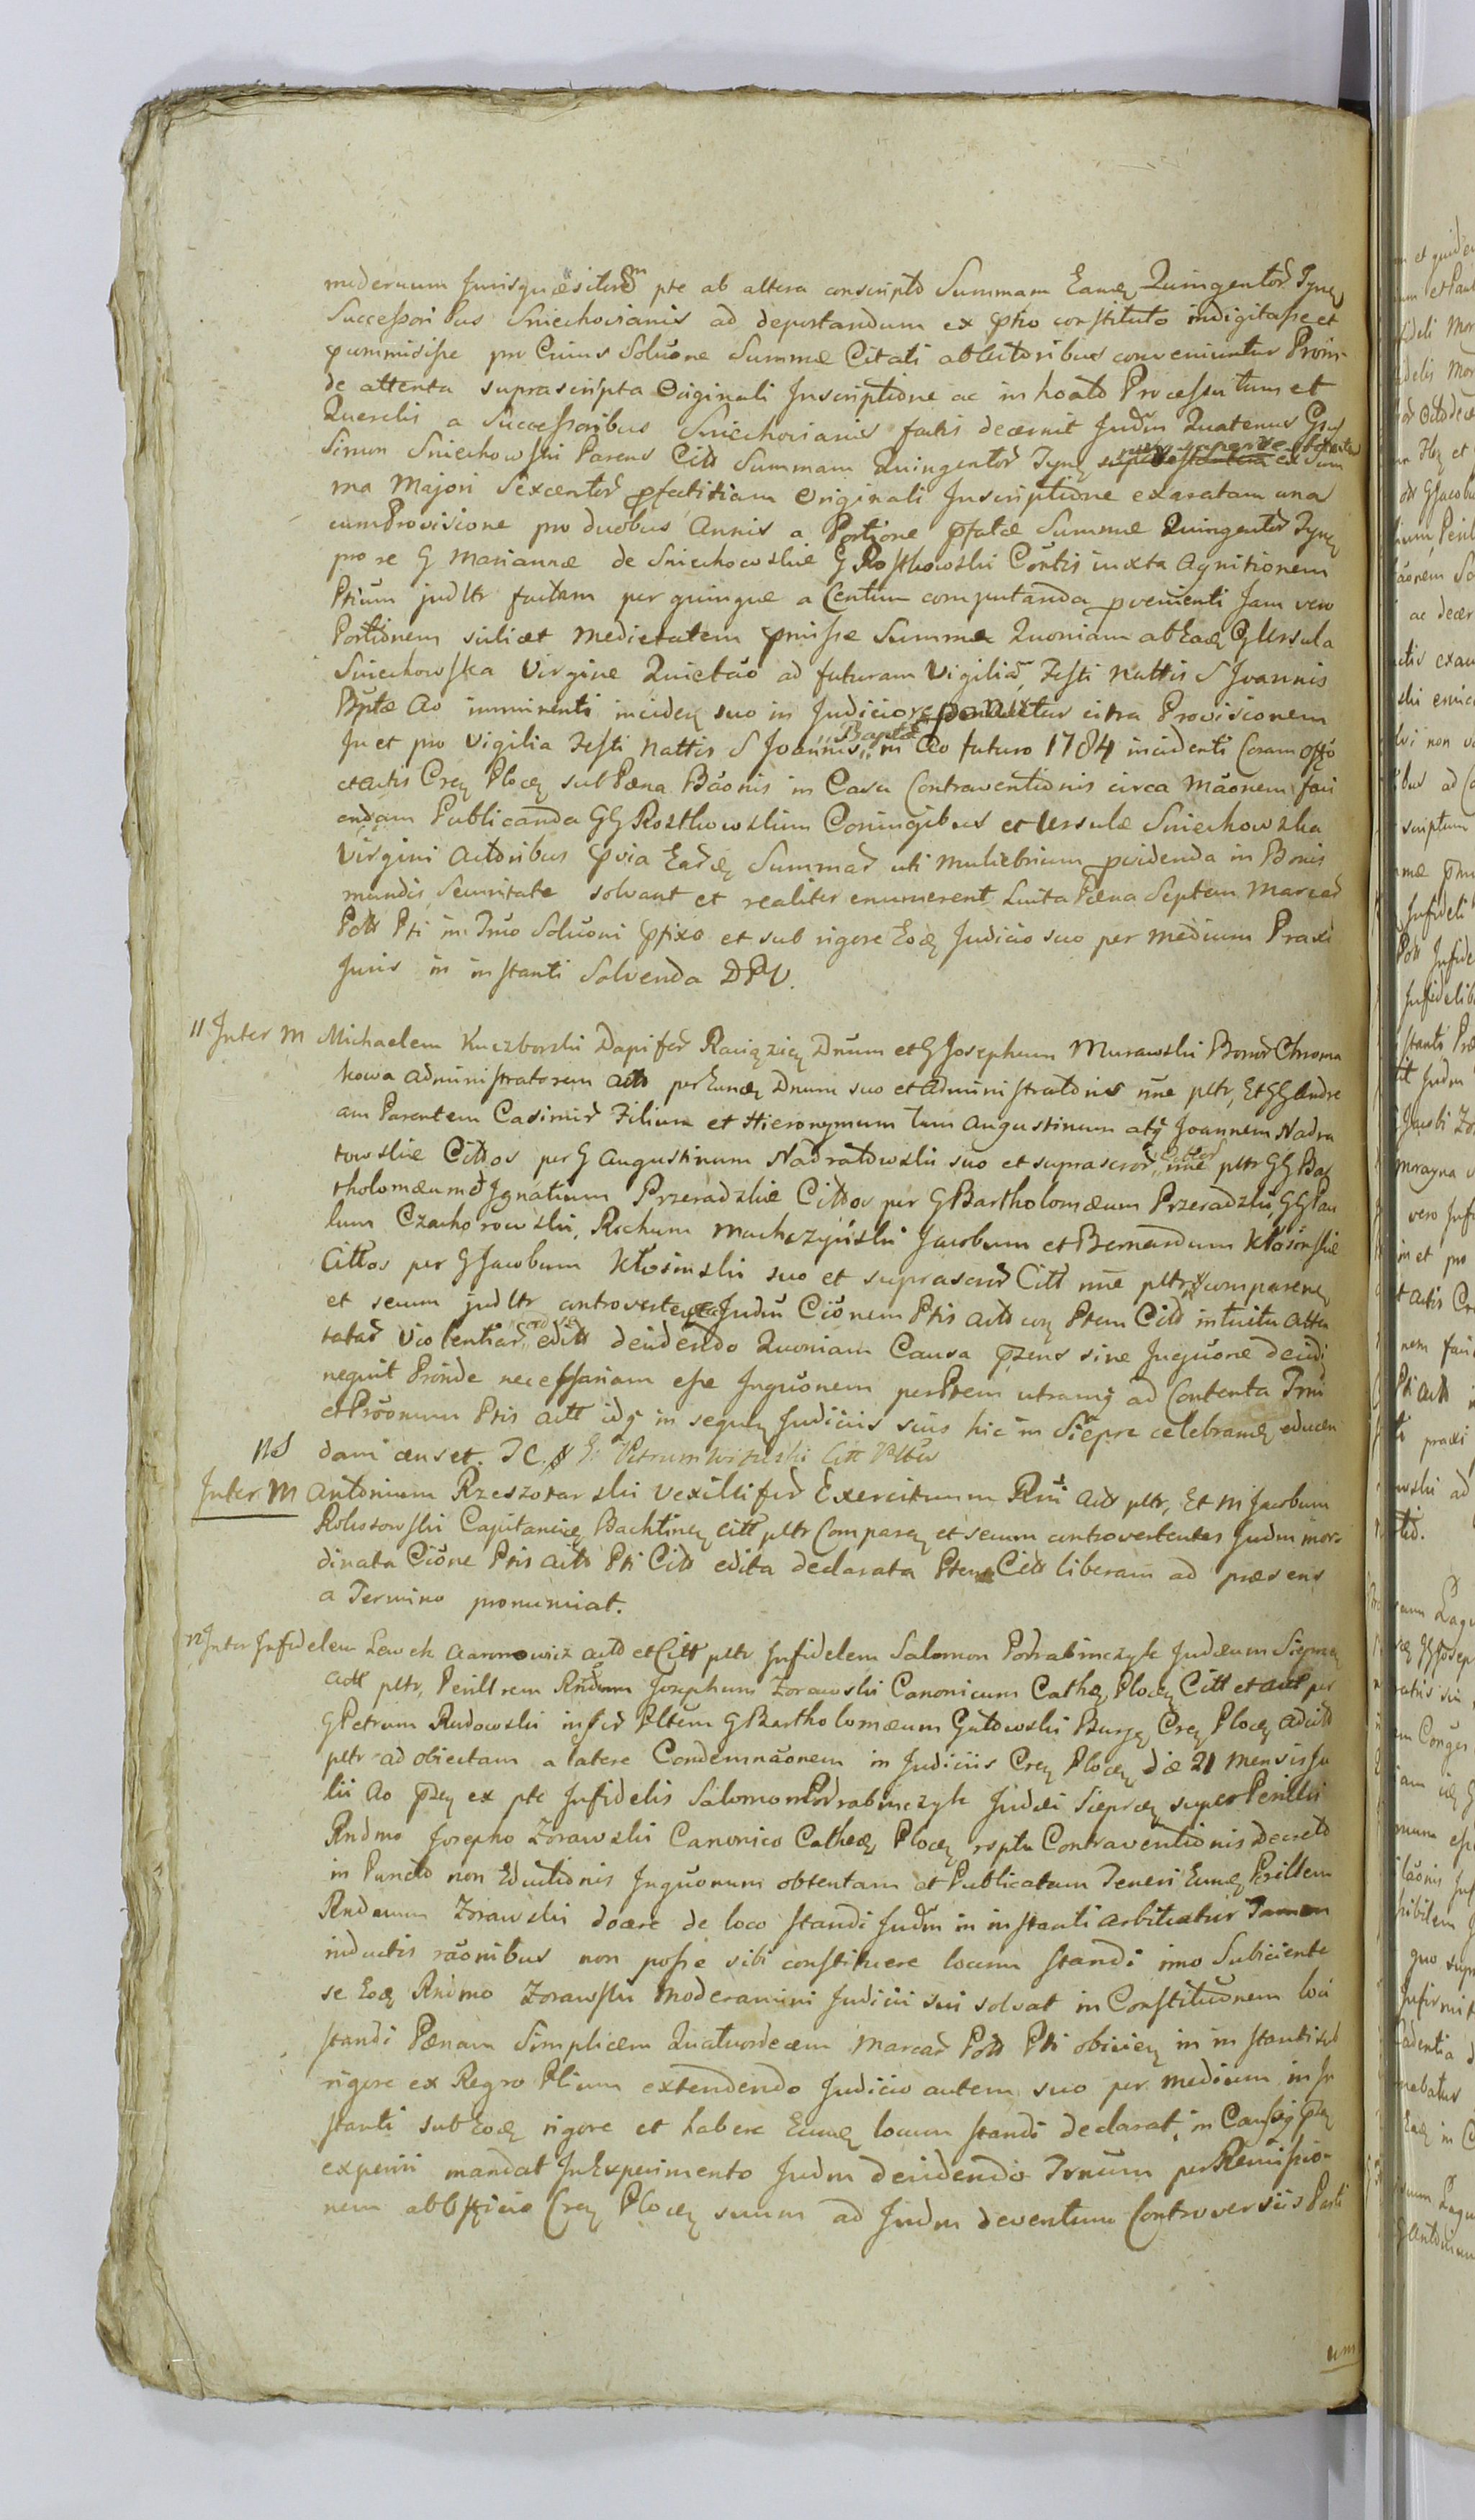 Jurisquæsitorum pte ab altera conscripto Summam Eandę Quingentor Tynę
Successoribus Sniechovianis ad deportandum ex constituto indigitasse et
pro Cuius Soluõne Summæ Citati ab Actoribus conveniuntur Proin
de attenta suprascripta Originali Inscriptione ac inhoato Processu tum et
Querelis a Successoribus Sniechovianis factis decernit Judm Quatenus
Simon Sniechowski Parens Citt Summam Quingentor Tynę ex Sum
ma Majori Sexcentor Originali Inscriptione exaratam una
cum Provisione pro duobus Annis a Portione pfatæ Summæ Quingentor Tynę
pro re G Mariannæ de Sniechowskie G Rostkowski Contis iuxta Agnitionem
Ptium judltr factam per quinque a Centum computanda pvenienti Jam vero
Portionem scilicet Medietatem pmissæ Summæ Quoniam ab Eadę G Ursula
Sniechowska Virgine ad futuram Vigiliam Festi Nattis S Joannis
Bptæ Ao imminenti inciden suo in Judicio reponuetur citra Provisionem
In et pro Vigilia Festi Nattis S Joannis Baptæ in Ao futuro 1784 incidenti Coram Offo
et actis Crę Plocę sub Pæna Bãonis in Casu Contraventionis circa Mãonem faci
endam Publicanda GG Rostkowskim Coniugibus et Ursulæ Sniechowska
Virgini Actoribus pvia Eardę Summar uti muliebrium pvidenda in Bonis
mundis Securitate solvant et realiter enumerent Luita Pæna Septem Marcar
Pott Pti in Trno Soluõni pfixo et sub rigore Eodę Judicio suo per medium Praxi
Juris in instanti Solvenda DPV.
11 Inter M Michaelem Kuczborski Dapifer Raciązię Dnum et G Josephum Murawski Bonor Chroma
kowa Administratorem Actt per Eundę Dnum suo et Administratoris nne pltr, Et GG Andre
am Parentem Casimir Filium et Hieronymum tum Augustinum atq Joannem Nadra
towskie Cittos per G Augustinum Nadratowski suo et suprascror Cittor nne pltr GG Bar
tholomæum et Ignatium Przeradzkie Cittos per G Bartholomæum Przeradzki, GG Pau
lum Czachorowski, Rochum Machczyński Jacobum et Bernardum Kłosinskie
Cittos per G Jacobum Kłosinski suo et suprascror Citt nne pltr comparenę
et secum judltr controvertentes Judm Ciõnem Ptis Actt con Ptem Citt intuitu atten
tatar violentiar editt decidendo Quoniam Causa pzens sine Inquõne decidi
nequit Proinde necessariam esse Inquõnem per Ptem utramq ad Contenta Trni
et Prõonum Ptis Actt idq in sequę Judiciis suis hic in Siepre celebranę educen
dam censet.
NS
Inter M Antonium Rzeszotarski Vexillifer Exercituum Rni Actt pltr, Et M Jacobum
Rokosowski Capitaneię Bachtinę Citt pltr Comparę et secum controvertentes Judm inor
dinata Ciõne Ptis Actt Pti Citt edita declarata Ptem Citt liberam ad præsens
a Termino pronunciat.
12 Inter Infidelem Lewek Aaronowicz Actt et Citt pltr Infidelem Salomon Podrabinczyk Judæum Siepręn
Actt pltr, Perilltrem Rndum Josephum Zorawski Canonicum Cathę Plocę Citt et Actt per
G Petrum Rudowski infer Pltem G Bartholomæum Gutowski Burgę Crę Plocę Adcitt
pltr ad obiectam a latere Condemnãonem in Judiciis Crę Plocę die 21 mensis Ju
lii Ao pzę ex pte Infidelis Salomon Podrabinczyk Judæi Siepręn super Perilltri
Rndmo Josepho Zorawski Canonico Cathedę Plocę rsptu Contraventionis Decreto
in Puncto non Eductionis Inquõnum obtentam et Publicatam Teneri Eundę Perilltem
Rndmum Zorawski docere de loco standi Judm in instanti arbitratur Tamen
inductis rãonibus non posse sibi constituere locum standi imo Subiiciente
se Eodę Rndmo Zorawski Moderamini Judicii sui solvat in Constituõnem loci
standi Pænam Simplicem Quatuordecem Marcar Pott Pti obiicienę in instanti sub
rigore ex Regro Ptium extendendo Judicio autem suo per medium in In
stanti sub Eodę rigore et habere Eundę locum standi declarat, in Causaq pzę
experiri mandat In Experimento Judm decidendo Trnum per Remissio-
nem ab Officio Crę Plocę suum ad Judm deventum Controversiis Parti
um